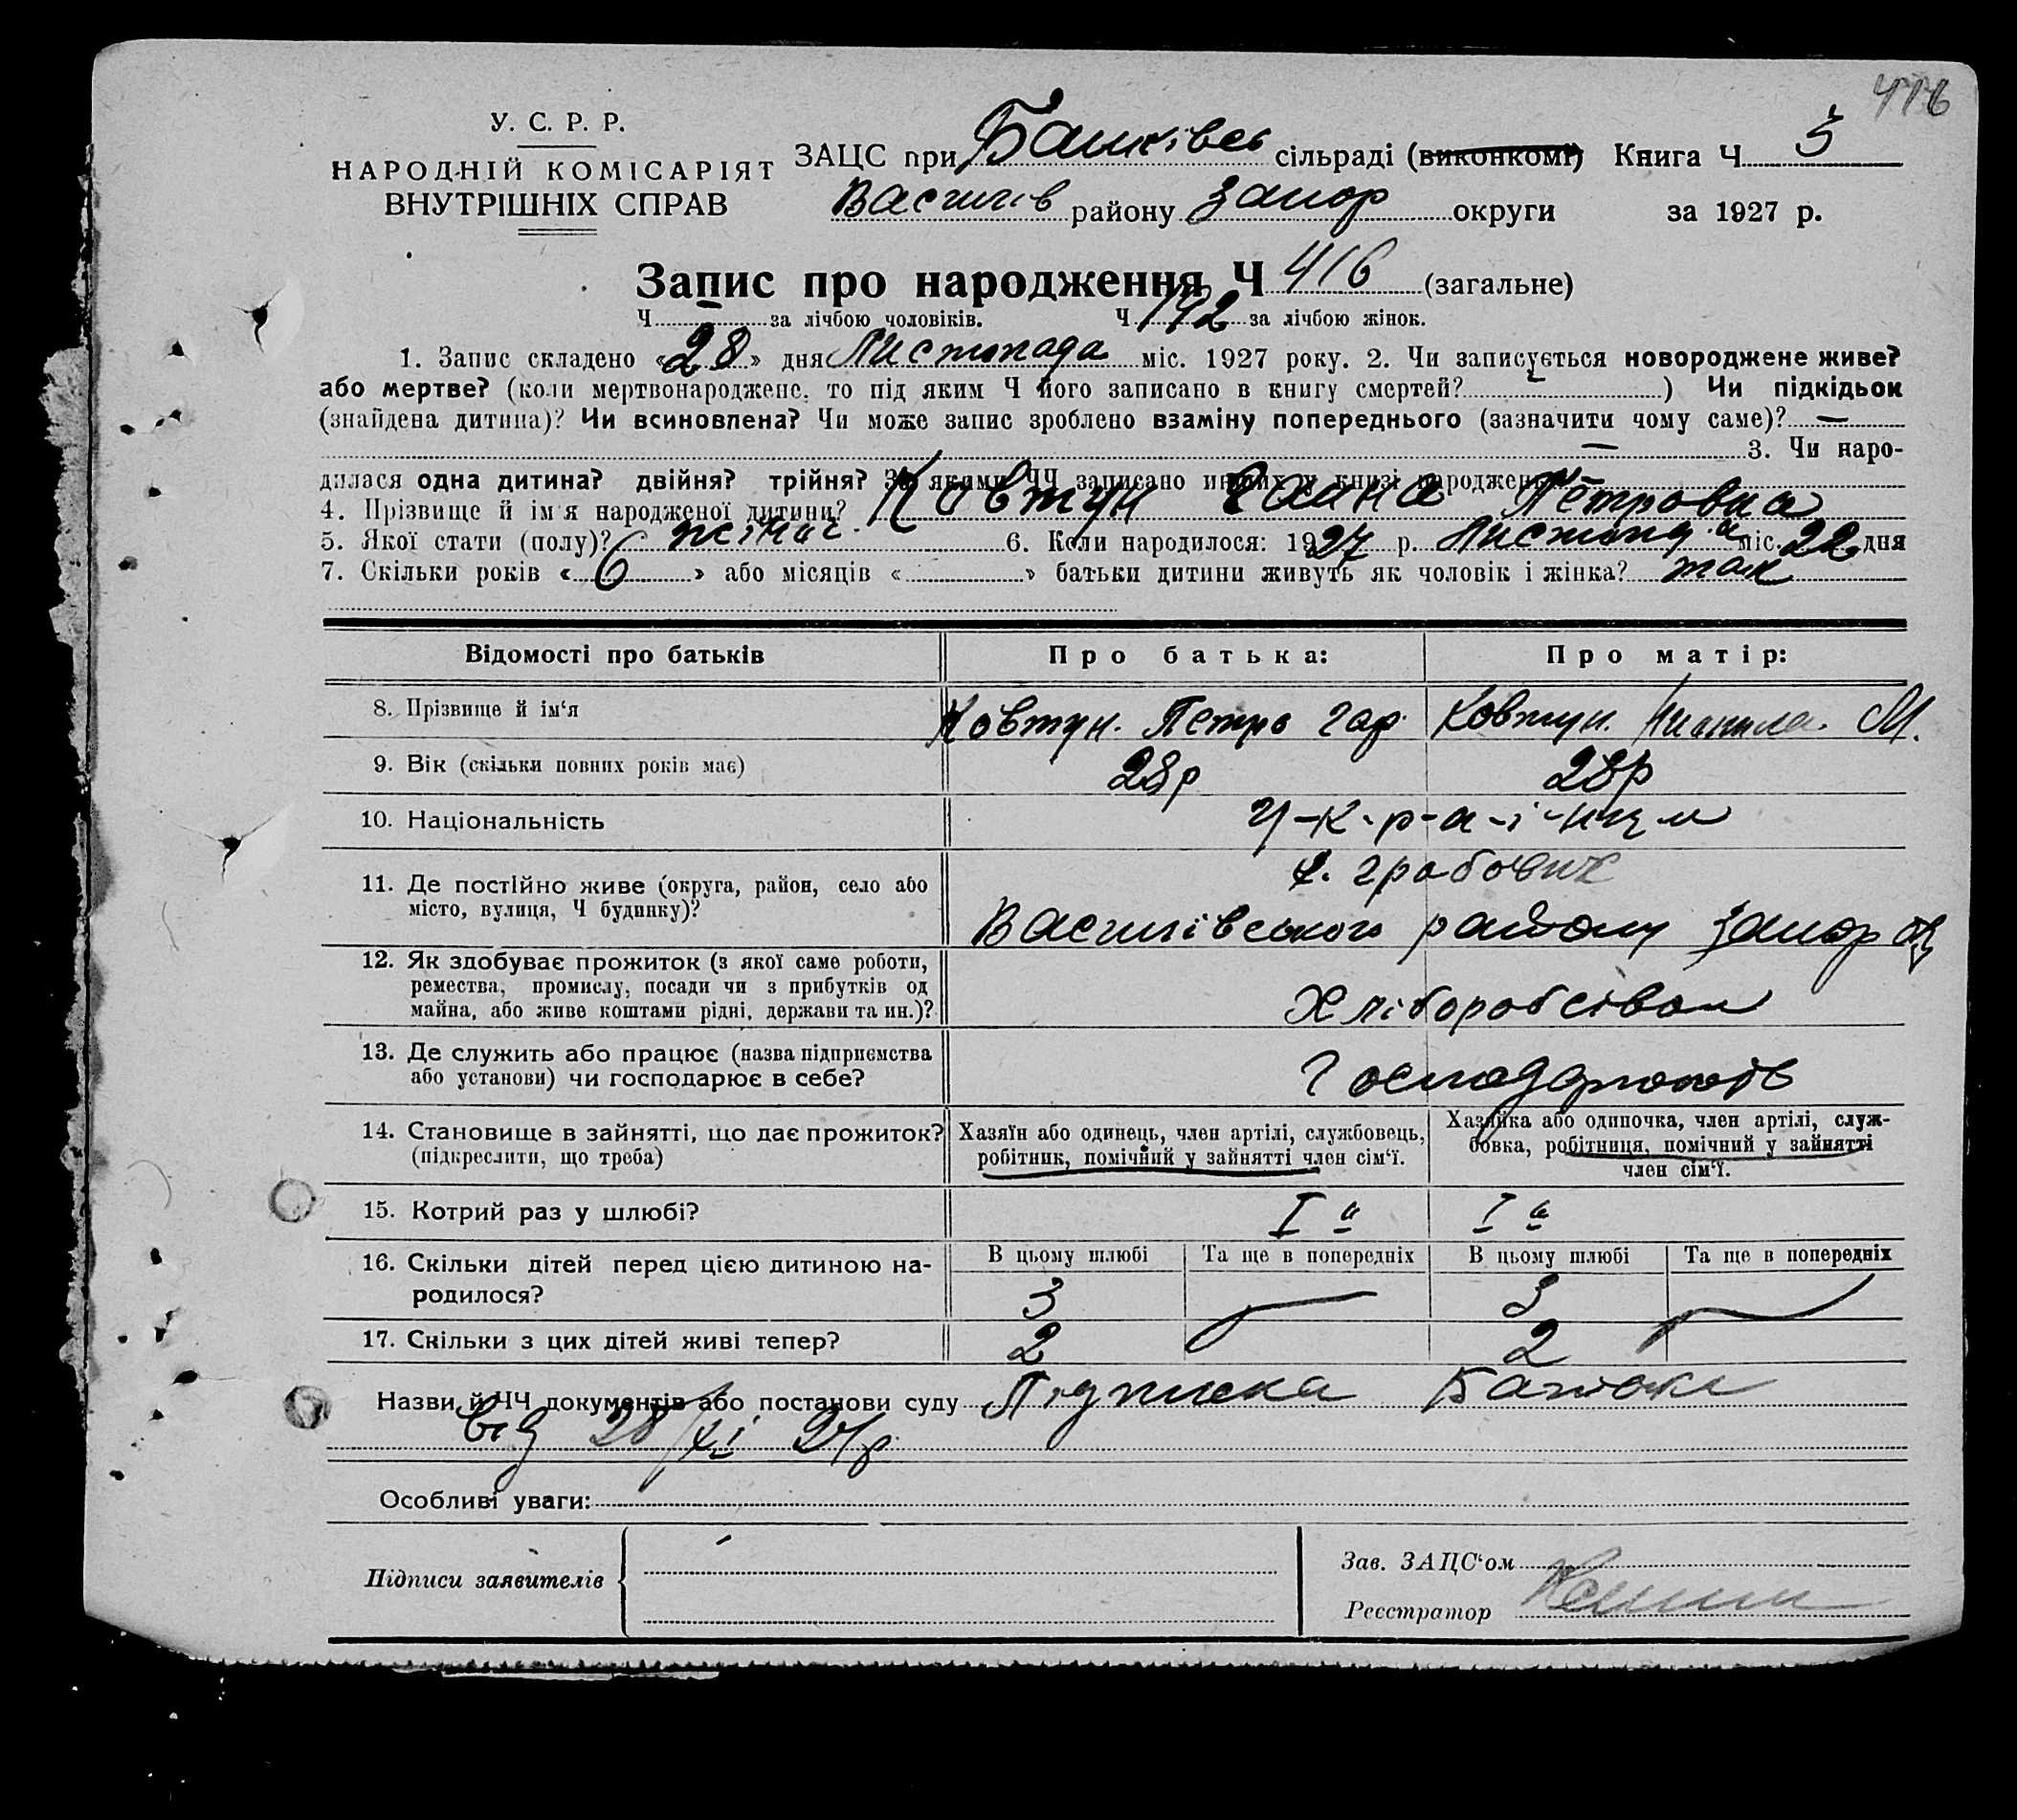 416
У. С. Р. Р.
НАРОДНІЙ КОМІСАРІЯТ
ВНУТРІШНІХ СПРАВ
ЗАЦС при сільраді (виконкомі) Книга Ч 5
Василів району Запор округи за 1927 р.
Запис про народження Ч 416 (загальне)
Ч — за лічбою чоловіків. Ч 192 за лічбою жінок.
1. Запис складено «28» дня Листопада міс. 1927 року. 2. Чи записується новороджене живе?
або мертве? (коли мертвонароджене, то під яким Ч його записано в книгу смертей? — ) Чи підкідьок
(знайдена дитина)? Чи всиновлена? Чи може запис зроблено взаміну попереднього (зазначити чому саме)? —
— 3. Чи наро-
дилася одна дитина? двійня? трійня? За якими ЧЧ записано инших у книзі народжень
4. Прізвище й ім'я народженої дитини? Ковтун Ганна Петровна
5. Якої стати (полу)? жіноч. 6. Коли народилося: 1927 р. Листопада міс. 22 дня
7. Скільки років «6» або місяців « » батьки дитини живуть як чоловік і жінка? так
Відомості про батьків Про батька: Про матір:
8. Прізвище й ім'я Ковтун. Петро Гав. Ковтун. М.
9. Вік (скільки повних років має) 28р 28р
10. Національність У-к-р-а-ї-нци
11. Де постійно живе (округа, район, село або
місто, вулиця, Ч будинку)?
Василівського району Запор окр
12. Як здобуває прожиток (з якої саме роботи,
ремества, промислу, посади чи з прибутків од
майна, або живе коштами рідні, держави та ин.)?
Хліборобством
13. Де служить або працює (назва підприємства
або установи) чи господарює в себе?
14. Становище в зайнятті, що дає прожиток?
(підкреслити, що треба)
Хазяїн або одинець, член артілі, службовець,
робітник, помічний у зайнятті член сім'ї.
Хазяйка або одиночка, член артілі, служ-
бовка, робітниця, помічний у зайнятті
член сім'ї.
15. Котрий раз у шлюбі? I й I й
16. Скільки дітей перед цією дитиною на-
родилося?
В цьому шлюбі Та ще в попередніх В цьому шлюбі Та ще в попередніх
3 — 3 —
17. Скільки з цих дітей живі тепер? 2 2
Назви й ЧЧ документів або постанови суду Підписка Батька
від 28/XI 27р
Особливі уваги:
Підписи заявителів
Зав. ЗАЦС'ом
Реєстратор